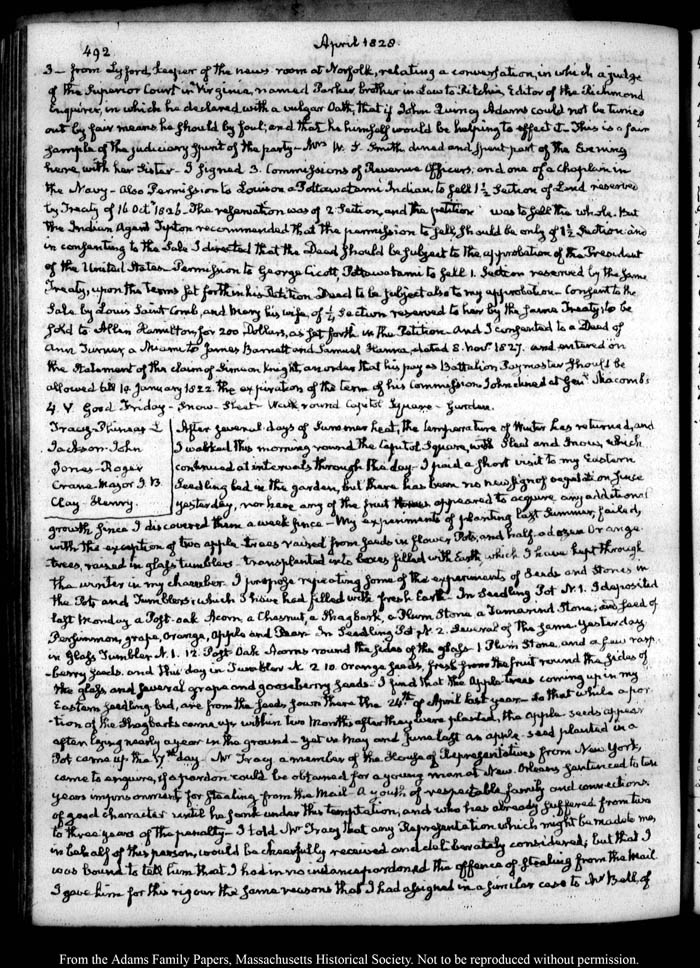 492
April 1828
3 – from Lyford, keeper of the news room at Norfolk, relating a conversation, in which a judge
of the Superior Court in Virginia, named Parker brother in Law to Ritchie, Editor of the Richmond
Enquirer, in which he declared with a vulgar Oath, that if John Quincy Adams could not be turned
out by fair means he should by foul, and that he himself would be helping to effect it – This is a fair
sample of the judiciary of the party – Mrs W. S. Smith dined and spent part of the Evening
here, with her Sister – I signed 3. Commissions of Revenue Officers, and one of a Chaplain in
the Navy – Also Permission to Louison a Pottawatami Indian, to sell 1½ Section of Land reserved
by Treaty of 16 Octr 1826. The reservation was of 2 Section, and the petition was to sell the whole. But
the Indian Agent Tipton recommended that the permission to sell should be only of 1½ Section and
in consenting to the Sale I directed that the Deed should be subject to the approbation of the President
of the United States. Permission to George Cicott, Pottawatami to sell 1. Section reserved by the same
Treaty, upon the terms set forth in his Petition Deed to be subject also to my approbation – Consent to the
Sale by Louis Saint Comb, and Mary his wife, of ¼ Section reserved to her by the same Treaty, to be
sold to Allen Hamilton, for 200 Dollars, as set forth in the Petition – And I consented to a Deed of
Ann Turner, a Miami to James Barnett and Samuel Hanna, dated 8. Novr 1827. and entered on
the Statement of the claim of Simeon Knight, an order that his pay as Battalion Paymaster should be
allowed till 14 January 1822. the expiration of the term of his Commission. John dined at Genl Macomb's
4. V Good Friday – Snow – Sleet – Walk round Capitol Square – Garden.
Tracy – Phineas L
Jackson – John
Jones – Roger
Crane – Major I. B.
Clay – Henry.
After several days of Summer heat, the temperature of Winter has returned, and
I walked this morning round the Capitol Square, with Sleet and Snow, which
continued at intervals through the day – I paid a short visit to my Eastern
Seedling bed in the garden, but there has been no new sign of vegetation since
yesterday, nor have any of the fruit appeared to acquire any additional
growth since I discovered them a week since – My experiments of planting last Summer, failed,
with the exception of two apple-trees raised from seeds in flower Pots, and half a dozen Orange
trees, raised in glass tumblers – transplanted into boxes filled with Earth, which I have kept through
the winter in my chamber. I propose repeating some of the experiments of Seeds and Stones in
the Pots and Tumblers; which I have had filled with fresh Earth. In Seedling Pot N. 1. I deposited
last Monday a Post-oak Acorn a Chesnut, a Shagbark, a Plum Stone a Tamarind Stone; and seed of
Persimmon, grape, Orange, Apple and Pear. In Seedling Pot N. 2. Several of the same Yesterday
in Glass Tumbler N. 1. 12. Post Oak Acorns round the sides of the glass – 1 Plum Stone, and a few rasp
-berry seeds. and this day in Tumbler N. 2 10 Orange seeds, fresh from the fruit round the sides of
the glass and several grape and gooseberry seeds – I find that the Apple trees coming up in my
Eastern seedling bed, are from the seeds sown there the 24th of April last year – So that while a por
-tion of the Shagbarks came up within two Months after they were planted, the apple-seeds appear
after lying nearly a year in the ground – Yet in May and June last an apple-seed planted in a
Pot came up the 17th day – Mr Tracy a member of the House of Representatives from New York,
came to enquire, if a pardon could be obtained for a young man at New Orleans sentenced to ten
years imprisonment for stealing from the Mail – A youth of respectable family and connections,
of good character until he sank under this temptation, and who has already suffered from two
to three years of the penalty – I told Mr Tracy that any Representation which might be made to me,
in behalf of this person, would be cheerfully received and deliberately considered; but that I
was bound to tell him that I had in no instance pardoned the offence of stealing from the Mail
I gave him for this rigour the same reasons that I had assigned in a similar case to Mr Bell, of
From the Adams Family Papers, Massachusetts Historical Society. Not to be reproduced without permission.